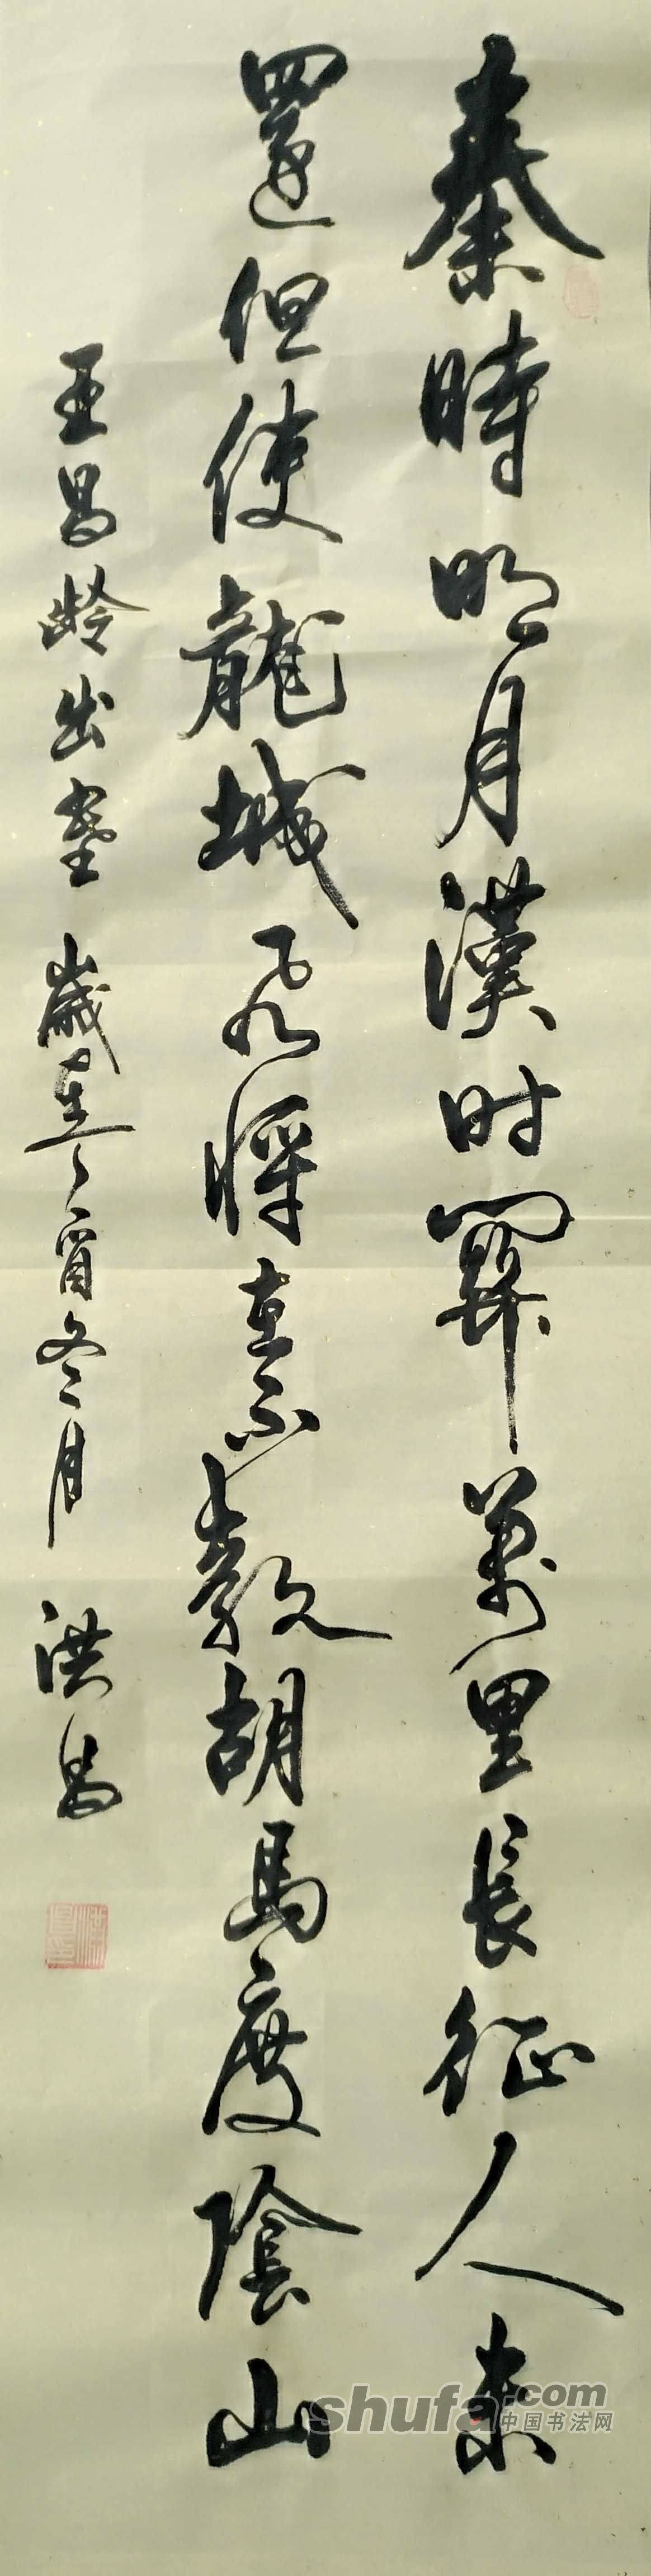 秦時明月漢时關萬里長征人未
還但使龍城飛將在不教胡馬度陰山
王昌齡出塞 歲在丁酉冬月 洪昌
shufa.com
中国书法网